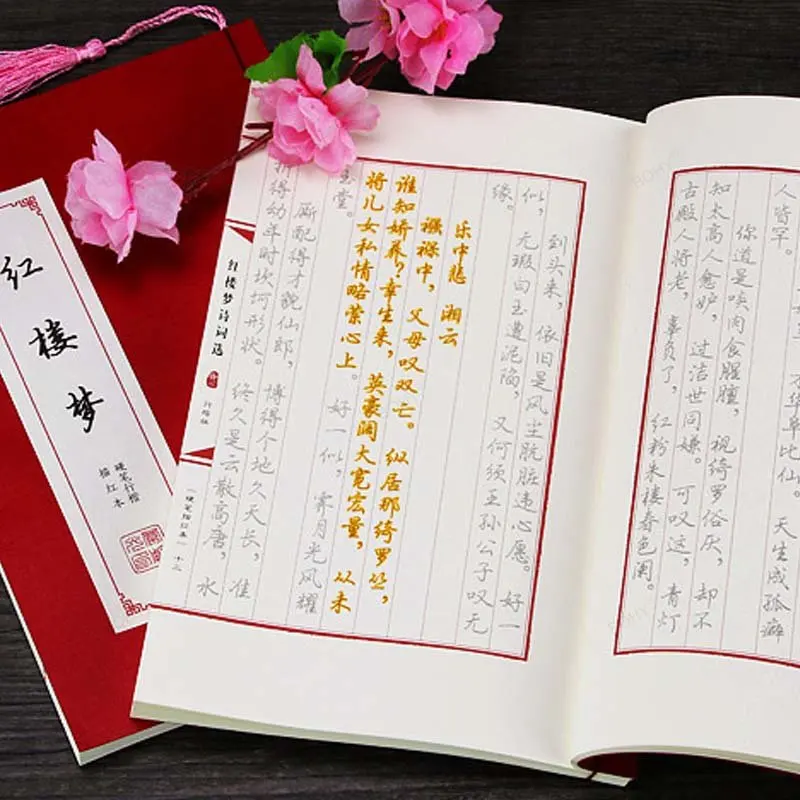 华阜比仙。天生成孤癖
人皆罕。
你道是啖肉食腥膻,视绮罗俗厌,却不
知太高人愈妒,过洁世同嫌。可叹这,青灯
古殿人将老,辜负了,红粉朱楼春色阑。
到头来,依旧是风尘肮脏违心愿。好一
似,无瑕白玉遭泥陷,又何须王孙公子叹无
缘。
乐中悲 湘云
襁褓中,父母叹双亡。纵居那绮罗丛,
谁知娇养?幸生来,英豪阔大宽宏量,从未
将儿女私情略萦心上。好一似,霁月光风耀
玉堂。
厮配得才貌仙郎,博得个地久天长,准
折得幼年时坎坷形状。终久是云散高唐,水
红楼梦诗词选
《硬笔描红本》十三
红楼梦
硬笔行楷
描红本